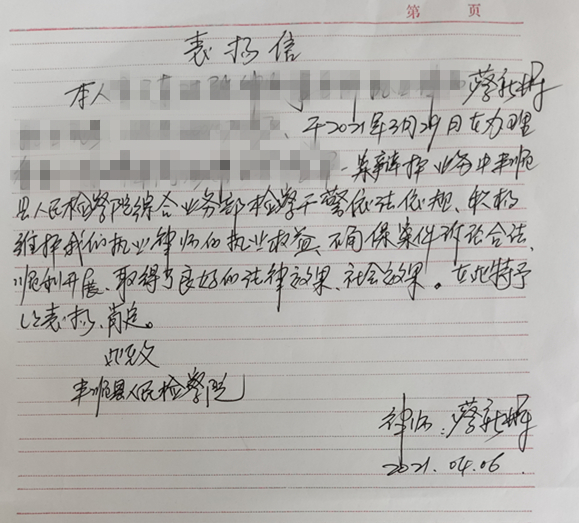 第 页
表扬信
本人 蔡
于2021年3月29日在办理
一案辩护业务中丰顺
县人民检察院综合业务部检察干警依法依规、积极
维护我们执业律师的执业权益、确保案件诉讼合法、
顺利开展、取得了良好的法律效果、社会效果。在此特予
以表扬、肯定。
此致
丰顺县人民检察院
律师：蔡
2021.04.06